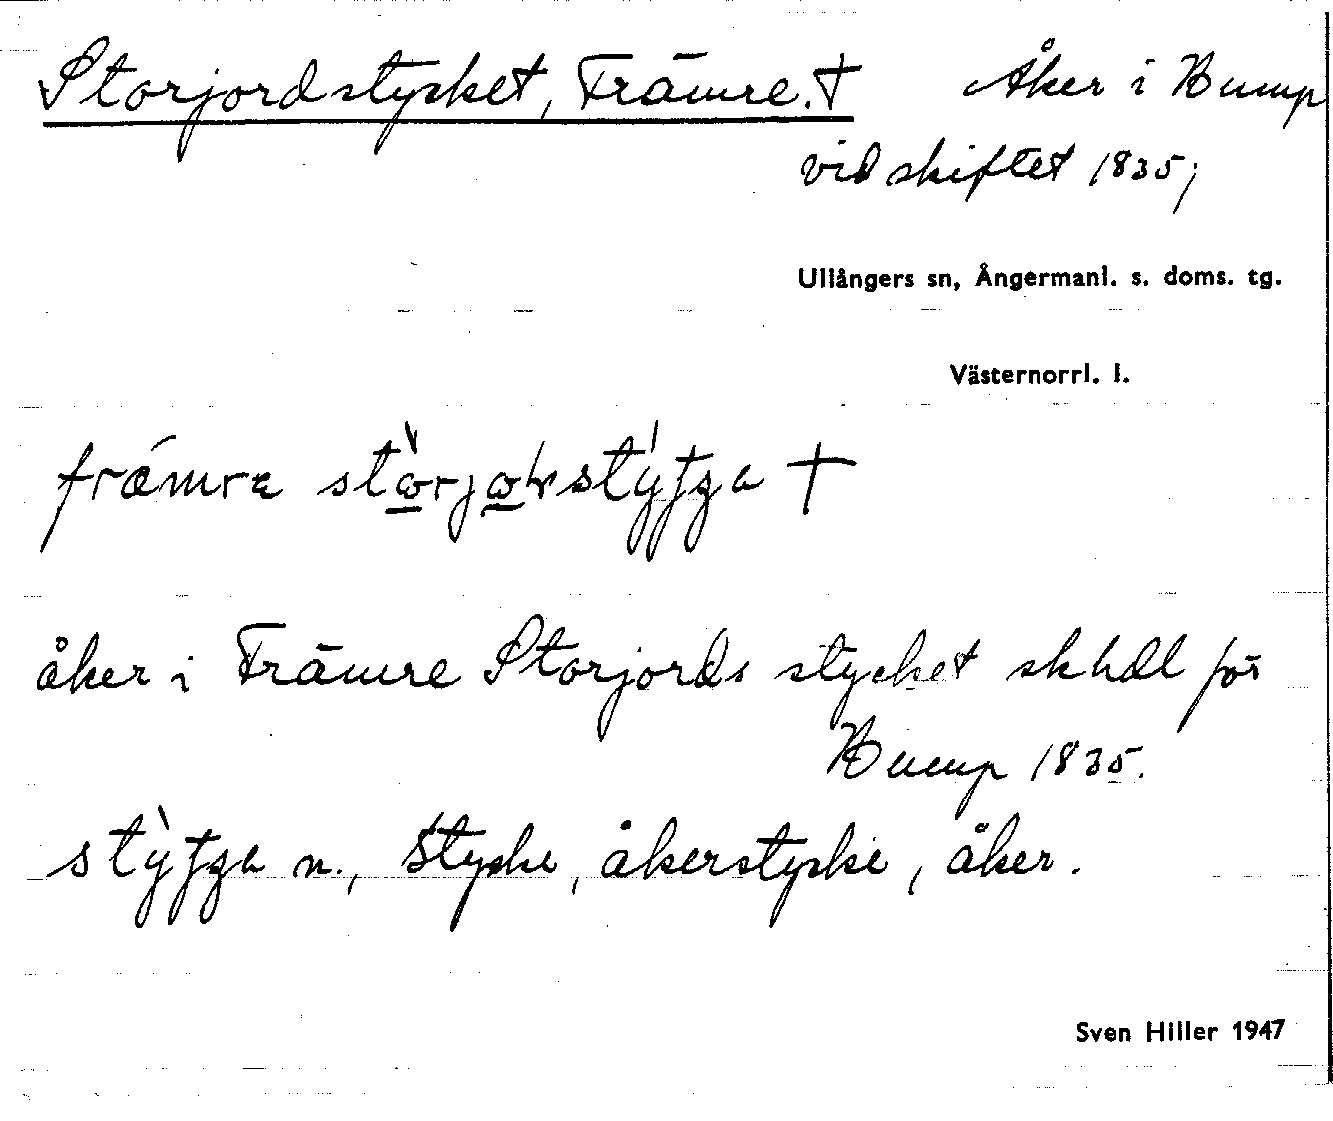 Storjordstycket, Främre. † Åker i Bump
vid skiftet 1835;
Ullångers sn, Ångermanl. s. doms. tg.
Västernorrl. l.
främra †
åker i Främre Storjords stycket skhdl för
Bump 1835.
n., Stycke, åkerstycke, åker.
Sven Hiller 1947